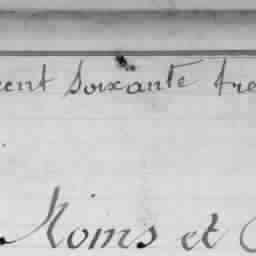 cent soixante tre
Noms et